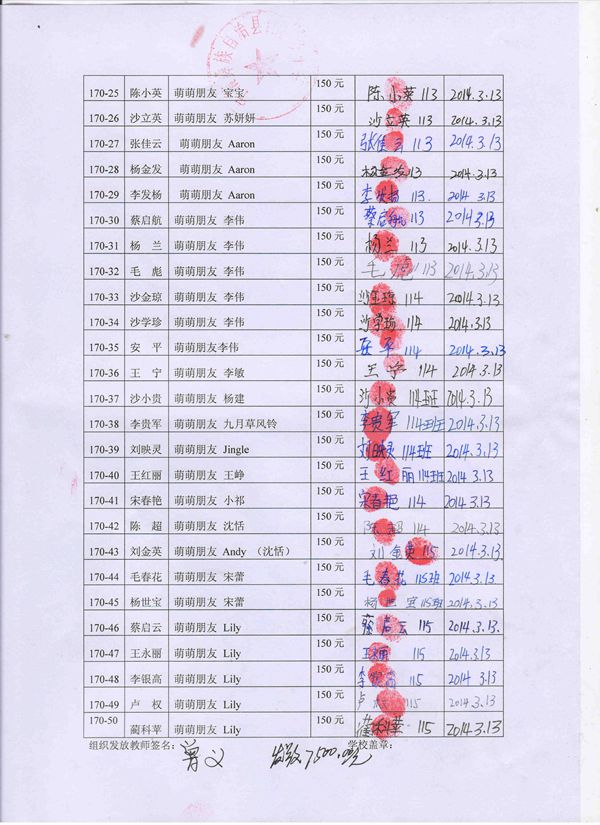 族自治县
170-25 陈小英 萌萌朋友 宝宝 150 元 陈小英 113 2014.3.13
170-26 沙立英 萌萌朋友 苏妍妍 150 元 沙立英 113 2014.3.13
170-27 张佳云 萌萌朋友 Aaron 150 元 张佳云 113 2014.3.13
170-28 杨金发 萌萌朋友 Aaron 150 元 杨金发 113 2014.3.13
170-29 李发杨 萌萌朋友 Aaron 150 元 李发杨 113. 2014.3.13
170-30 蔡启航 萌萌朋友 李伟 150 元 蔡启航 113 2014.3.13
170-31 杨 兰 萌萌朋友 李伟 150 元 杨兰 113 2014.3.13
170-32 毛 彪 萌萌朋友 李伟 150 元 毛 113 2014.3.13
170-33 沙金琼 萌萌朋友 李伟 150 元 沙金琼 114 2014.3.13
170-34 沙学珍 萌萌朋友 李伟 150 元 沙学珍 114 2014.3.13
170-35 安 平 萌萌朋友李伟 150 元 安平 114 2014.3.13
170-36 王 宁 萌萌朋友 李敏 150 元 王宁 114 2014.3.13
170-37 沙小贵 萌萌朋友 杨建 150 元 沙小贵 114班 2014.3.13
170-38 李贵军 萌萌朋友 九月草风铃 150 元 李贵军 114班 2014.3.13
170-39 刘映灵 萌萌朋友 Jingle 150 元 刘映灵 114班 2014.3.13
170-40 王红丽 萌萌朋友 王峥 150 元 王红丽 114班 2014.3.13
170-41 宋春艳 萌萌朋友 小祁 150 元 宋春艳 114 2014.3.13
170-42 陈 超 萌萌朋友 沈恬 150 元 陈超 114 2014.3.13
170-43 刘金英 萌萌朋友 Andy （沈恬） 150 元 刘金英 115 2014.3.13
170-44 毛春花 萌萌朋友 宋蕾 150 元 毛春花 115班 2014.3.13
170-45 杨世宝 萌萌朋友 宋蕾 150 元 杨世宝 115班 2014.3.13
170-46 蔡启云 萌萌朋友 Lily 150 元 蔡启云 115 2014.3.13.
170-47 王永丽 萌萌朋友 Lily 150 元 王永丽 115 2014.3.13
170-48 李银高 萌萌朋友 Lily 150 元 李银高 115 2014.3.13
170-49 卢 权 萌萌朋友 Lily 150 元 卢 115 2014.3.13
170-50 蔺科苹 萌萌朋友 Lily 150 元 蔺科苹 115 2014.3.13
组织发放教师签名： 学校盖章：
曾义 发放7500.元